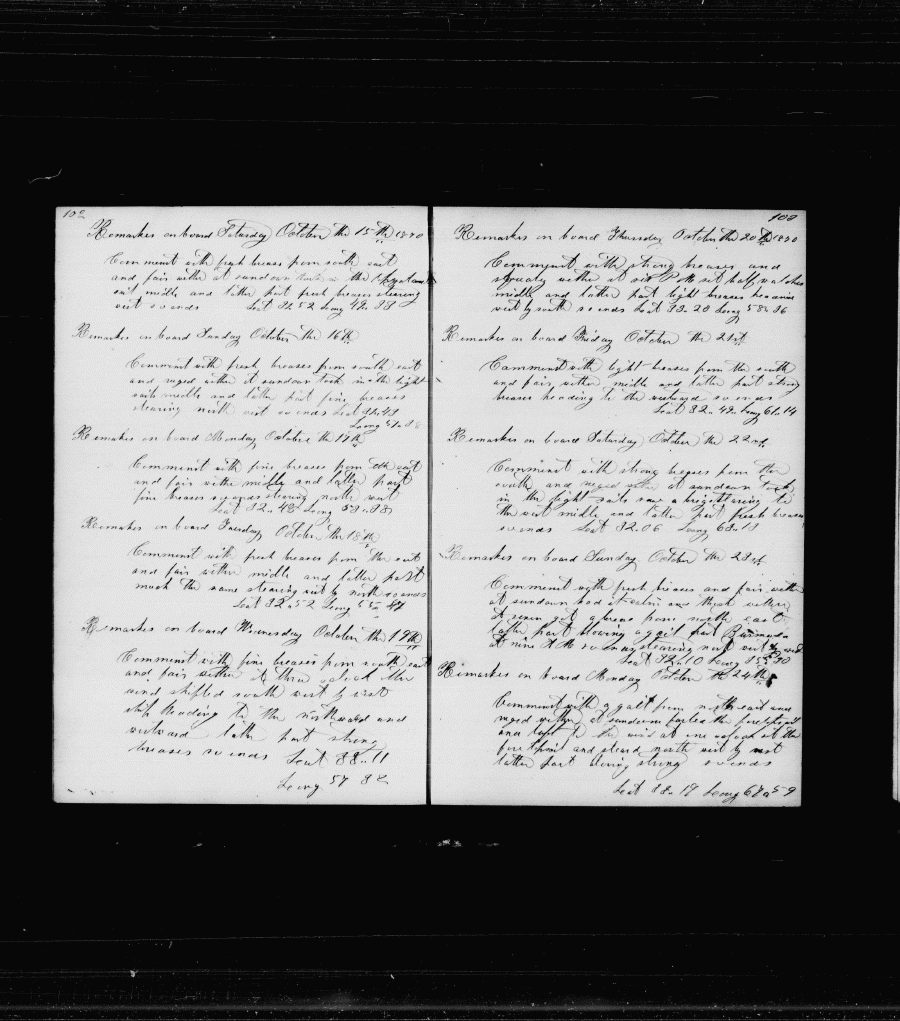 Remarks on board Saturday October the 15th 1870
Commint with fresh breases from south east
and fair wether at sundown in the
sail midle and latter part fresh breases stearing
west so ends Lat 32 52 Long
Remarks on board Sunday October the 16th
Commint with fresh breases from south east
and ruged wether at sundown took in the light
sails midle and latter part fine breases
stearing north west so ends Lat
Long
Remarks on board Monday October the 17th
Commint with fine breases from the east
and fair wether midle and latter part
fine breases so ends stearing north west
Lat 32 48 Long 53 38
Remarks on board Tuesday October the 18th
Commint with fresh breases from the east
and fair wether midle and latter part
much the same stearing west by north so ends
Lat 32 52 Long 55
Remarks on board Wenesday October the 19th
Commint with fine breases from south east
and fair wether at three oclock the
wind shifted south west by west
ship heading to the northward and
westward latter part strong
breases so ends Lat 33 11
Long 57
100
Remarks on board Thursday October the 20th 1870
Commint with strong breases and
squaly wether at six P M set half watches
midle and latter part light breases heading
west by south so ends Lat 33 20 Long 58 36
Remarks on board Friday October the 21st
Commint with light breases from the south
and fair wether midle and latter part strong
breases heading to the westward so ends
Lat 32 49 Long 61 14
Remarks on board Saturday October the 22nd
Commint with strong breases from the
south and ruged wether at sundown took
in the light sails saw a brig stearing to
the west midle and latter part fresh breases
so ends Lat 32 06 Long 63 13
Remarks on board Sunday October the 23
Commint with fresh breases and fair wether
at sundown had it calm and thick wether
at seven got a breas from north east
latter part blowing a gail past Barmuda
at nine A M so ends stearing north west by west
Lat 32 10 Long
Remarks on board Monday October the 24th
Commint with a gail from north east and
ruged wether at sundown furled the foretopsail
and luft to the wind at one oclock set the
foretopsail and steard north west by west
latter part blowing strong so ends
Lat 33 17 Long 67 59